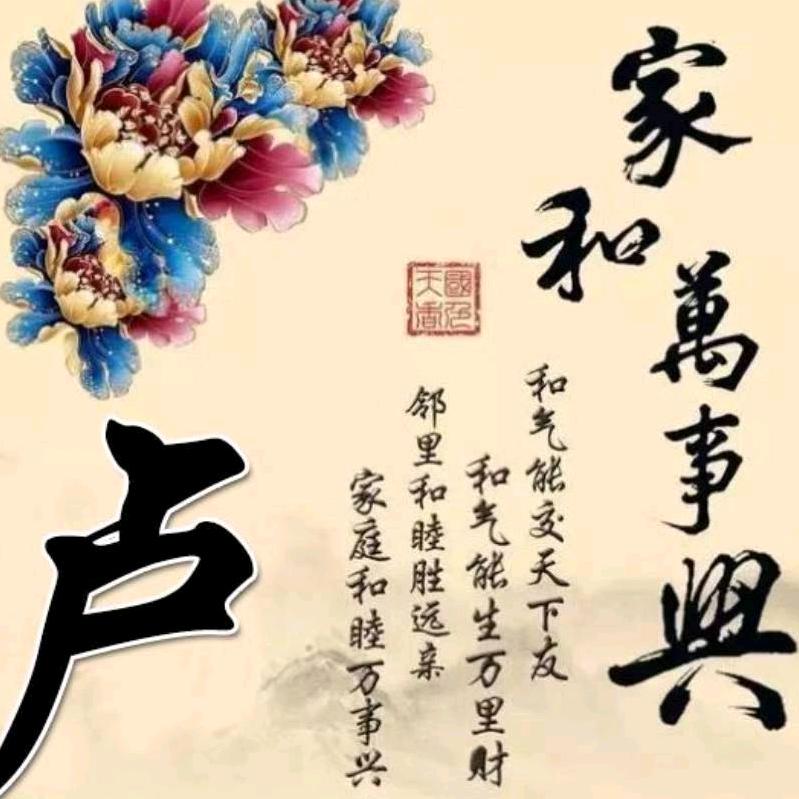 家和萬事興
國色天香
和气能交天下友
和气能生万里财
邻里和睦胜远亲
家庭和睦万事兴
卢